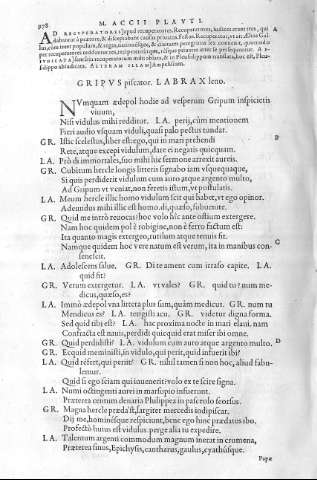 978 M. ACCII PLAVTI.
AD RECVPERATORES] apud recuperatores. Recuperatores, iudices erant tres, qui
GRIPVS piscator. LABRAX leno.
NVmquam ædepol hodie ad vesperum Gripum inspicietis
viuum,
Nisi vidulus mihi redditur. LA. perij, cùm mentionem
Fieri audio vsquam viduli, quasi palo pectus tundat.
GR. Illic scelestus, liber est: ego, qui in mari prehendi
Rete, atque excepi vidulum, dare ei negatis quicquam.
LA. Prô di immortales, suo mihi hic sermone arrexit aureis.
GR. Cubitum hercle longis litteris signabo iam vsquequaque,
Si quis perdiderit vidulum cum auro atque argento multo,
Ad Gripum vt veniat, non feretis istum, vt postulatis.
LA. Meum hercle illic homo vidulum scit qui habet, vt ego opinor.
Adeundus mihi illic est homo. di, quæso, subuenite.
GR. Quid me intrò reuocas? hoc volo hîc ante ostium extergere.
Nam hoc quidem pol è robigine, non è ferro factum est:
Ita quanto magis extergeo, rutilum atque tenuis fit.
Namque quidem hoc vere natum est verum, ita in manibus con-
senescit.
LA. Adolescens salue. GR. Di te ament cum irraso capite. LA.
quid fit?
GR. Verum extergetur. LA. vt vales? GR. quid tu? num me-
dicus, quæso, es?
LA. Immò ædepol vna littera plus sum, quàm medicus. GR. num tu
Mendicus es? LA. tetigisti acu. GR. videtur digna forma.
Sed quid tibi est? LA. hac proxima nocte in mari elaui. nam
Confracta est nauis, perdidi quicquid erat miser ibi omne.
GR. Quid perdidisti? LA. vidulum cum auro atque argento multo.
GR. Ecquid meministi, in vidulo, qui perit, quid infuerit ibi?
LA. Quid refert, qui periit? GR. nisi tamen si non hoc, aliud fabu-
lemur.
Quid si ego sciam qui inuenerit? volo ex te scire signa.
LA. Numi octingenti aurei in marsupio infuerunt.
Præterea centum denaria Philippea in pasceolo seorsus.
GR. Magna hercle præda'st, largiter mercedis indipiscar.
Dij me, hominésque respiciunt, bene ego hinc prædatus ibo.
Profectò huius est vidulus. perge alia tu expedire.
LA. Talentum argenti commodum magnum inerat in crumena,
Præterea sinus, Epichysis, cantharus, gaulus, cyathúsque.
Papæ
B
C
D